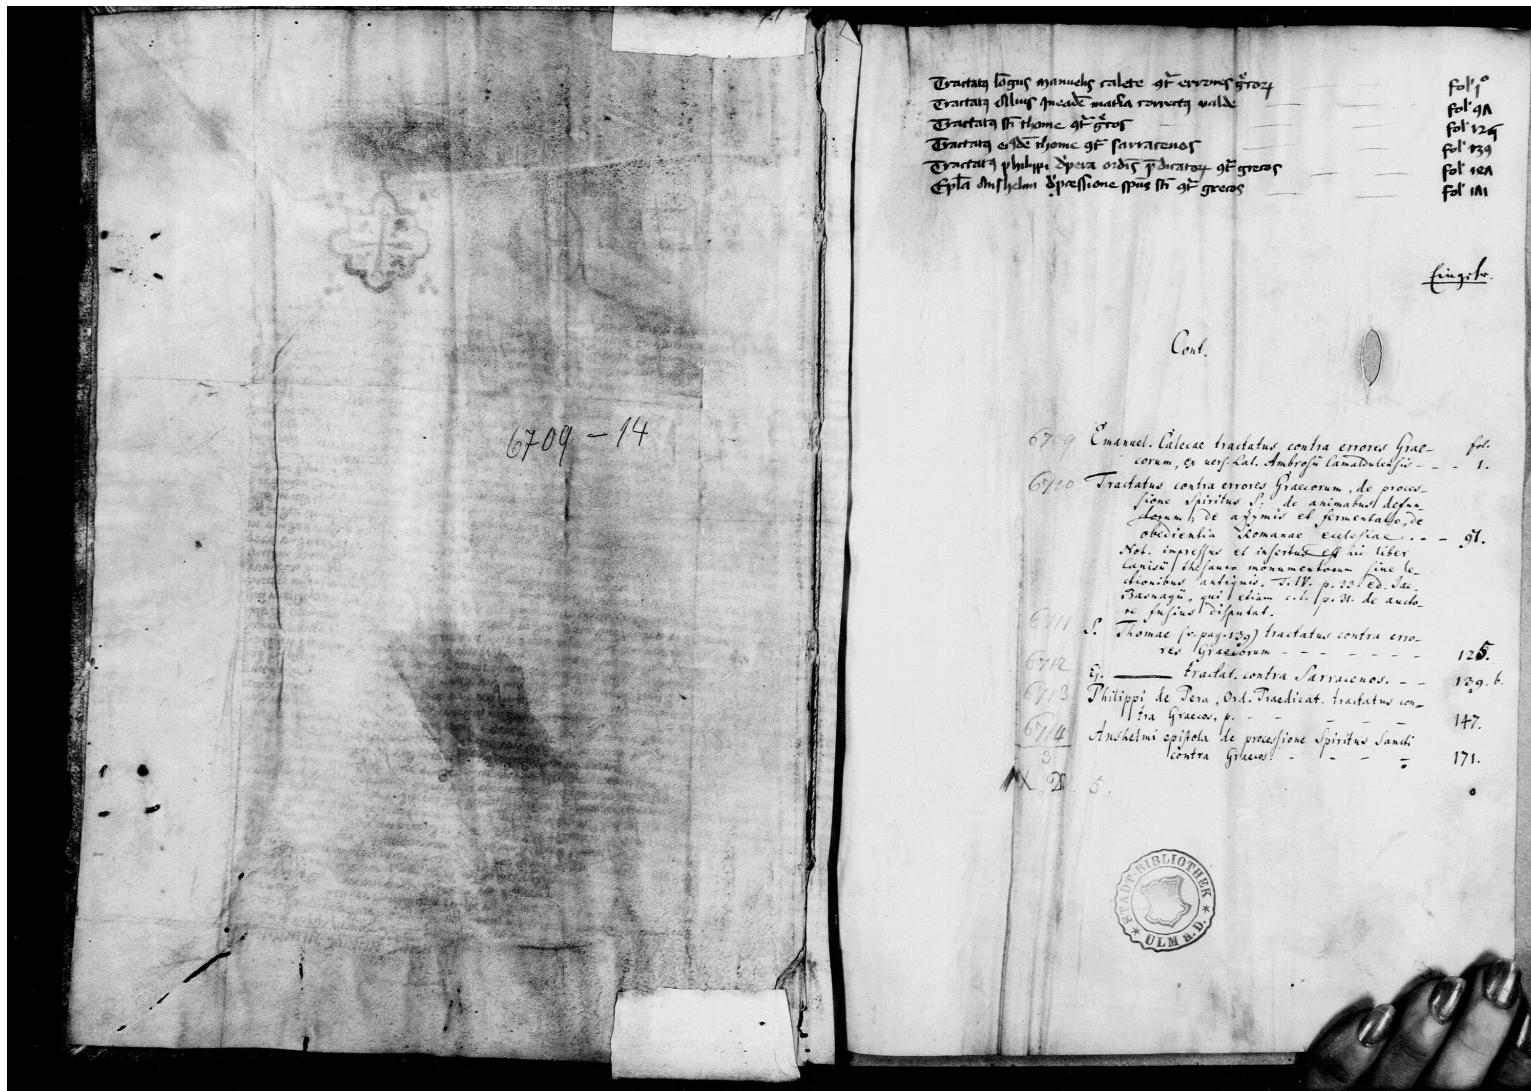 6709 – 14
Tractatꝰ lo̅gus manuelis calete ꝯt͛ errores g͛coꝝ fol' 1º
Tractatꝰ Aliuis in eade̅ mat͛ia correctꝰ valde fol' 91
Tractatꝰ s̅ti thome ꝯt͛ g͛cos fol' 125
Tractatꝰ eiꝰde̅ thome ꝯt͛ sarracenos fol' 139
Tractatꝰ philippi d' pera ordi̅s p̅dicatoꝝ ꝯt͛ grecos fol' 147
Ep̅la Anshelmi d' ꝓcessione sp̅us s̅ti ꝯt͛ grecos fol' 171
Cont.
6709 Emanuel. Calecae tractatus contra errores Grae- fol.
corum, ex vers. Lat. Ambrosii Camaldulensis - - - 1.
6710 Tractatus contra errores Graecorum, de proces-
sione Spiritus S. de animabus defun-
ctorum, de azymis et fermentato, de
obedientia Romanae ecclesiae . - - 91.
Not. impressus et insertus est hic liber
Canisii thesauro monumentorum sive le-
ctionibus antiquis. T. IV. p. 33. ed. Jac.
Basnagii, qui etiam c. l. p. 31. de aucto-
re fusius disputat.
6711 S. Thomae (v. pag. 139) tractatus contra erro-
res Graecorum - - - - - - - 125.
6712 Ej. —— tractat. contra Sarracenos. - - 139. b.
6713 Philippi de Pera, Ord. Praedicat. tractatus con-
tra Graecos, p. - - - - - 147.
6714 Anshelmi epistola de processione Spiritus Sancti
contra Graecos. - - - - 171.
3
5.
STADT-BIBLIOTHEK
ULM a. D.